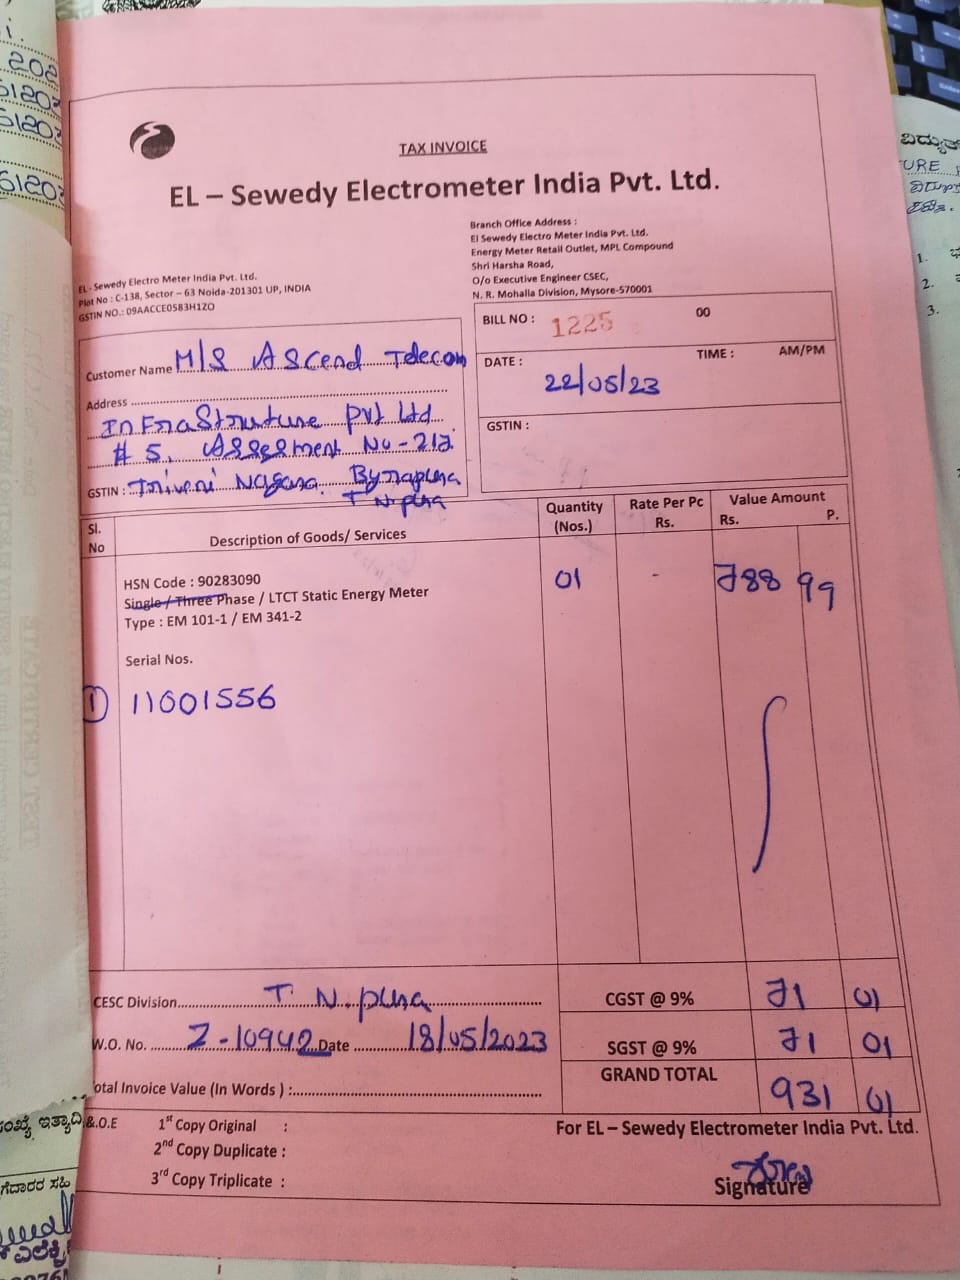 TAX INVOICE
EL – Sewedy Electrometer India Pvt. Ltd.
EL- Sewedy Electro Meter India Pvt. Ltd.
Plot No : C-138, Sector – 63 Noida-201301 UP, INDIA
GSTIN NO.: 09AACCE0583H1ZO
Branch Office Address :
El Sewedy Electro Meter India Pvt. Ltd.
Energy Meter Retail Outlet, MPL Compound
Shri Harsha Road,
O/o Executive Engineer CSEC,
N. R. Mohalla Division, Mysore-570001
BILL NO : 1225 00
DATE : TIME : AM/PM
22/05/23
GSTIN :
Customer Name M/S Ascend Telecom
Address
Infrastruture Pvt Ltd
# 5, Assesment No - 212
GSTIN : Triveni Nagara. Byrapura
T N. pura
Sl. No Description of Goods/ Services Quantity (Nos.) Rate Per Pc Rs. Value Amount Rs. P.
HSN Code : 90283090 01 - 788 99
Single / Three Phase / LTCT Static Energy Meter
Type : EM 101-1 / EM 341-2
Serial Nos.
① 11001556
CESC Division T. N. pura CGST @ 9% 71 01
W.O. No. Z-10942 Date 18/05/2023 SGST @ 9% 71 01
GRAND TOTAL 931 01
otal Invoice Value (In Words ) :
&.O.E 1st Copy Original :
2nd Copy Duplicate :
3rd Copy Triplicate :
For EL – Sewedy Electrometer India Pvt. Ltd.
Signature